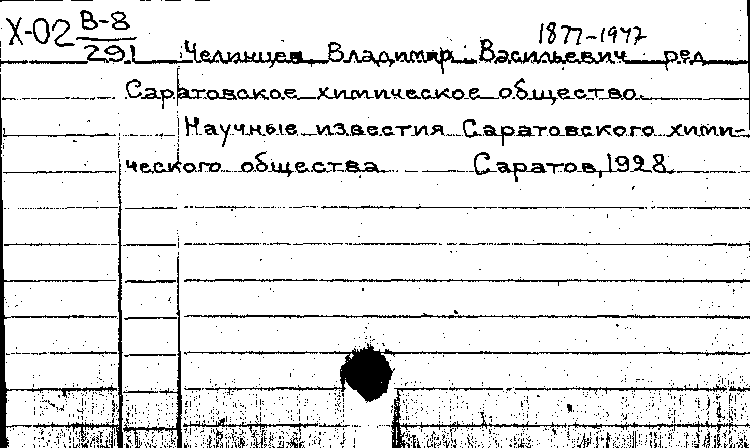 Х-02 В-8
291
1877-1947
Челинцев, Владимир Васильевич ред
Саратовское химическое общество.
Научные известия Саратовского хими-
ческого общества Саратов, 1928